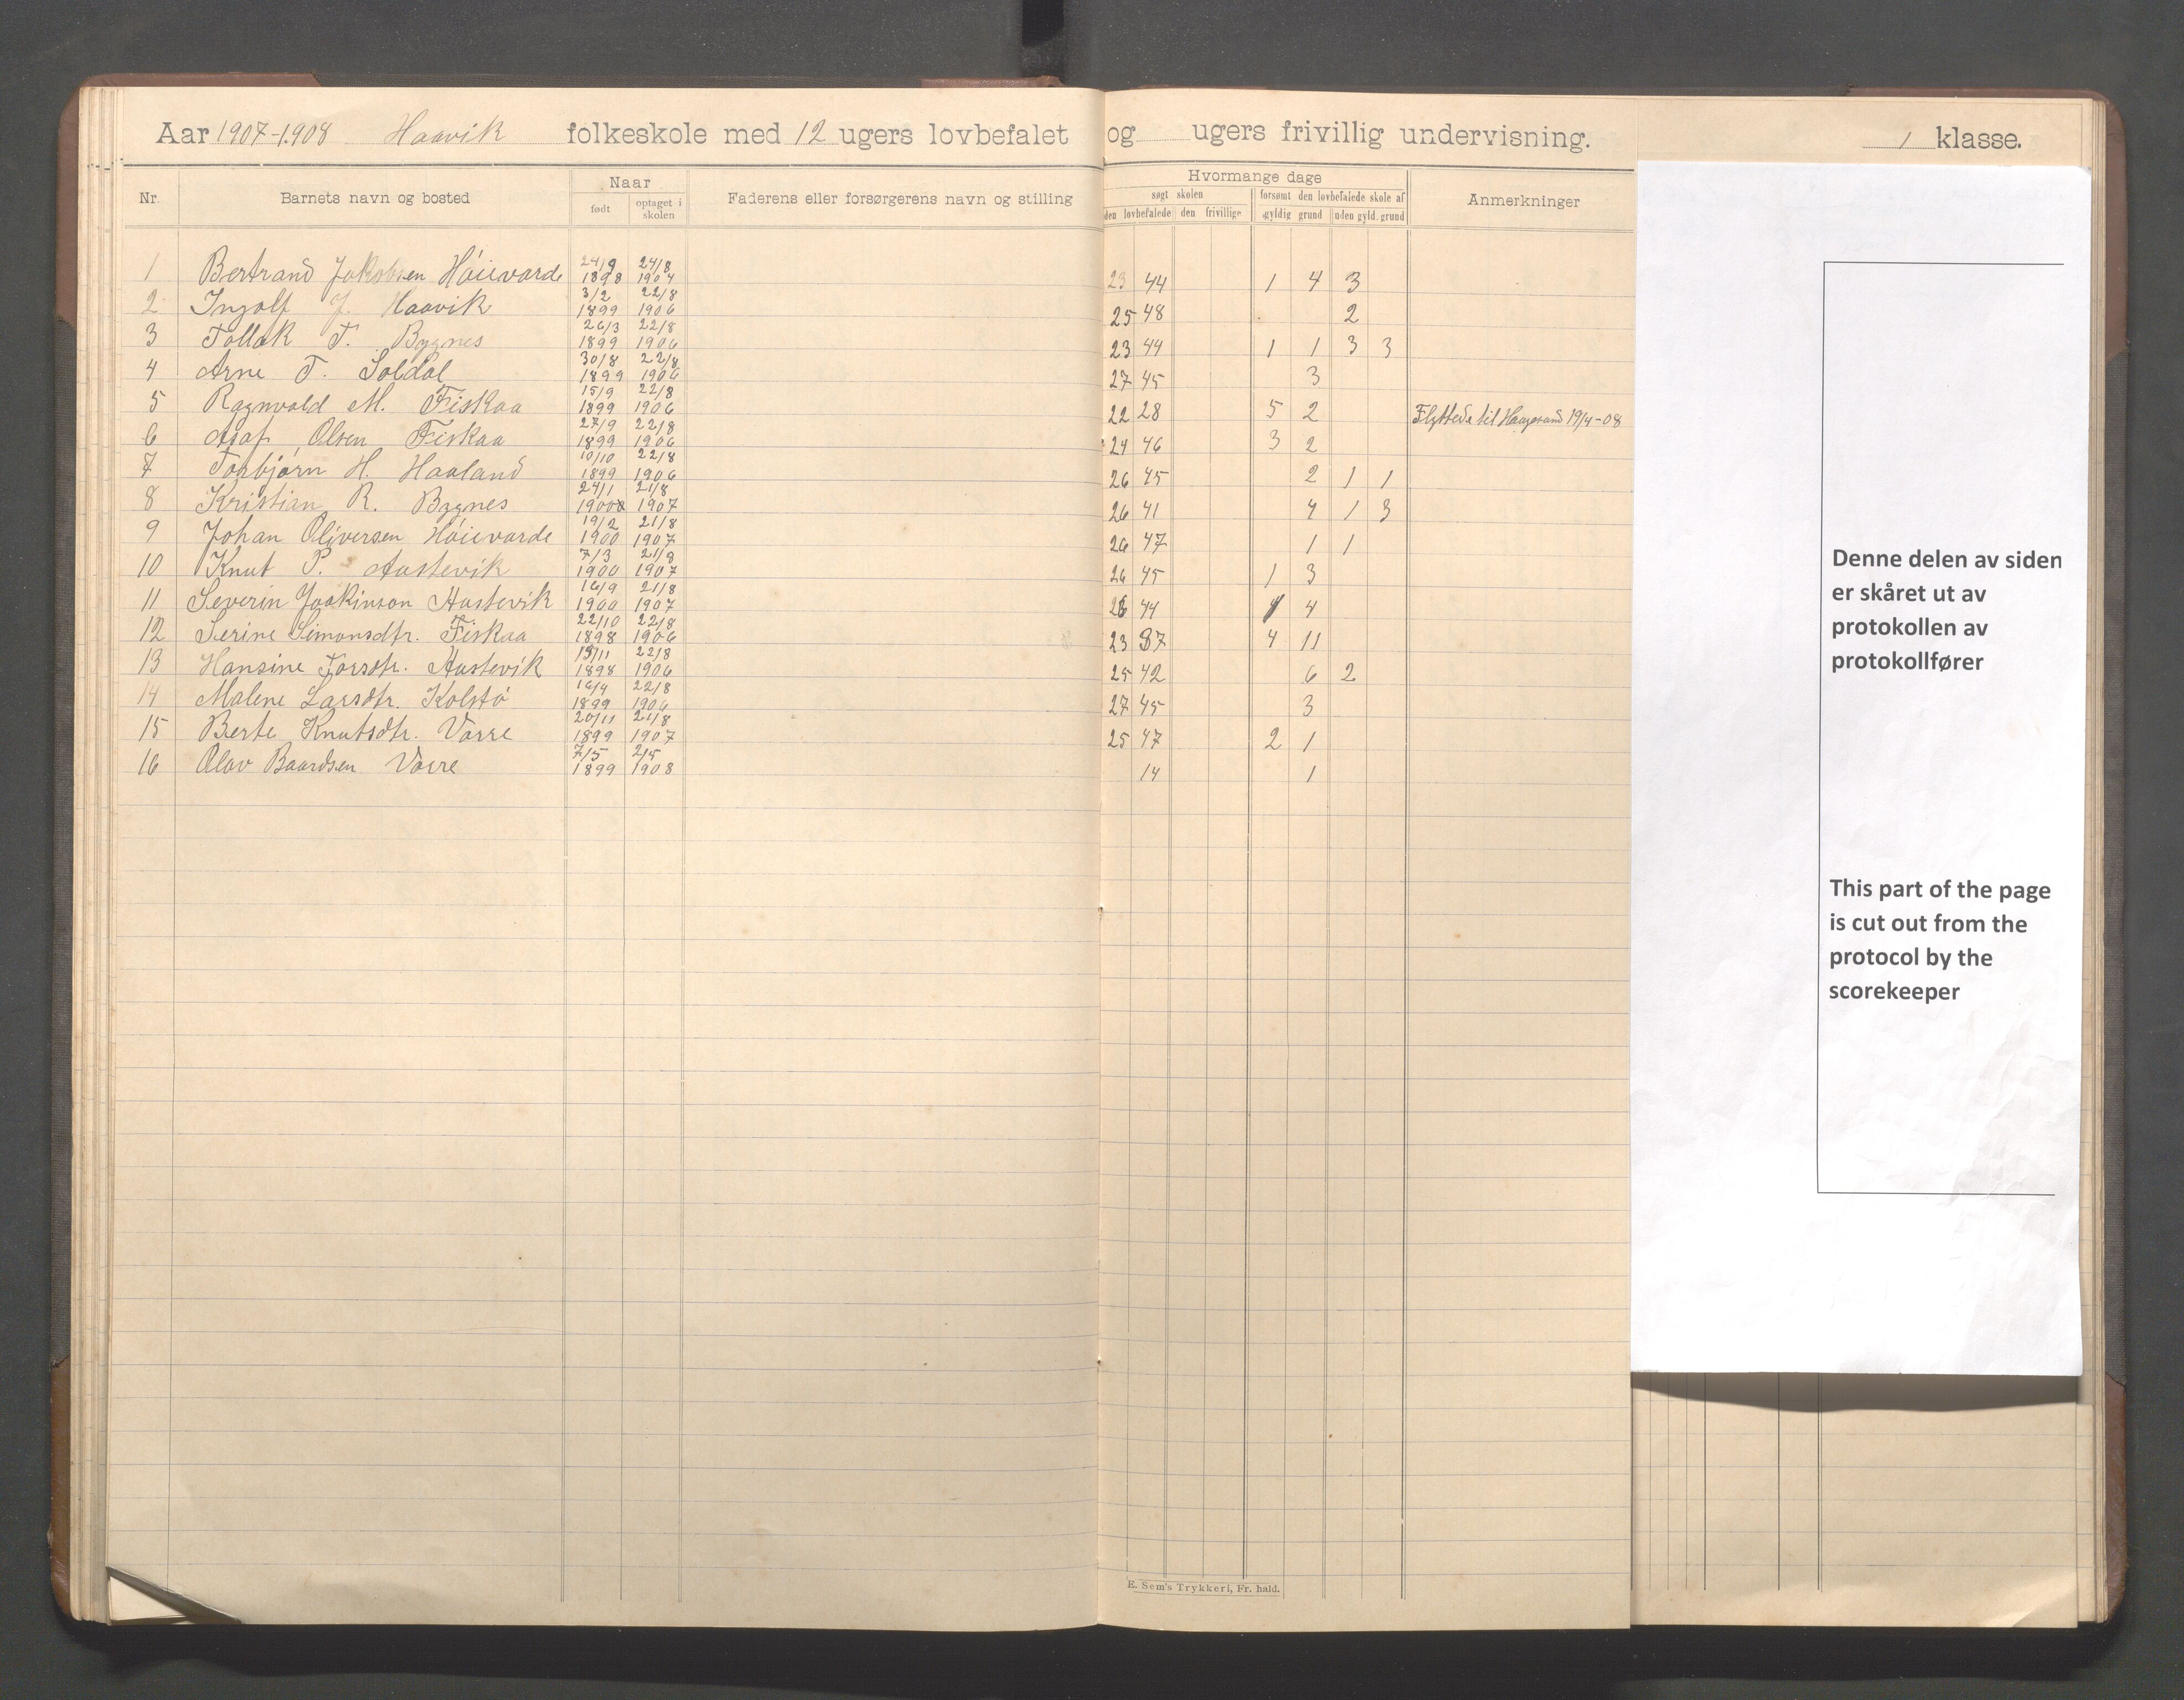 Aar 1907-1908 Haavik folkeskole med 12 ugers lovbefalet og ugers frivillig undervisning. 1 klasse.
Nr. Barnets navn og bosted Naar født optaget i skolen Faderens eller forsørgerens navn og stilling Hvormange dage søgt skolen den lovbefalede den frivillige forsømt den lovbefalede skole af gyldig grund uden gyld. grund Anmerkninger
1 Bertrand Jakobsen Høievarde 24/9 1898 24/8 1904 23 44 1 4 3
2 Ingolf J. Haavik 3/2 1899 22/8 1906 25 48 2
3 Tollak T. Bygnes 26/3 1899 22/8 1906 23 44 1 1 3 3
4 Arne T. Soldal 30/8 1899 22/8 1906 27 45 3
5 Ragnvald M. Fiskaa 15/9 1899 22/8 1906 22 28 5 2 Flyttede til Haugesund 19/4-08
6 Asaf Olsen Fiskaa 27/9 1899 22/8 1906 24 46 3 2
7 Torbjørn H. Haaland 10/10 1899 22/8 1906 26 45 2 1 1
8 Kristian R. Bygnes 24/1 1900 21/8 1907 26 41 4 1 3
9 Johan Oliversen Høievarde 19/2 1900 21/8 1907 26 47 1 1
10 Knut P. Austevik 7/3 1900 21/8 1907 26 45 1 3
11 Severin Joakinson Austevik 16/9 1900 21/8 1907 26 44 4
12 Serine Simonsdtr. Fiskaa 22/10 1898 22/8 1906 23 37 4 11
13 Hansine Torsdtr. Austevik 13/11 1898 22/8 1906 25 42 6 2
14 Malene Larsdtr. Kolstø 16/4 1899 22/8 1906 27 45 3
15 Berte Knutsdtr. Vorre 20/11 1899 21/8 1907 25 47 2 1
16 Olav Baardsen Vorre 7/5 1899 2/5 1908 14 1
E. Sem's Trykkeri, Fr. hald.
Denne delen av siden
er skåret ut av
protokollen av
protokollfører
This part of the page
is cut out from the
protocol by the
scorekeeper